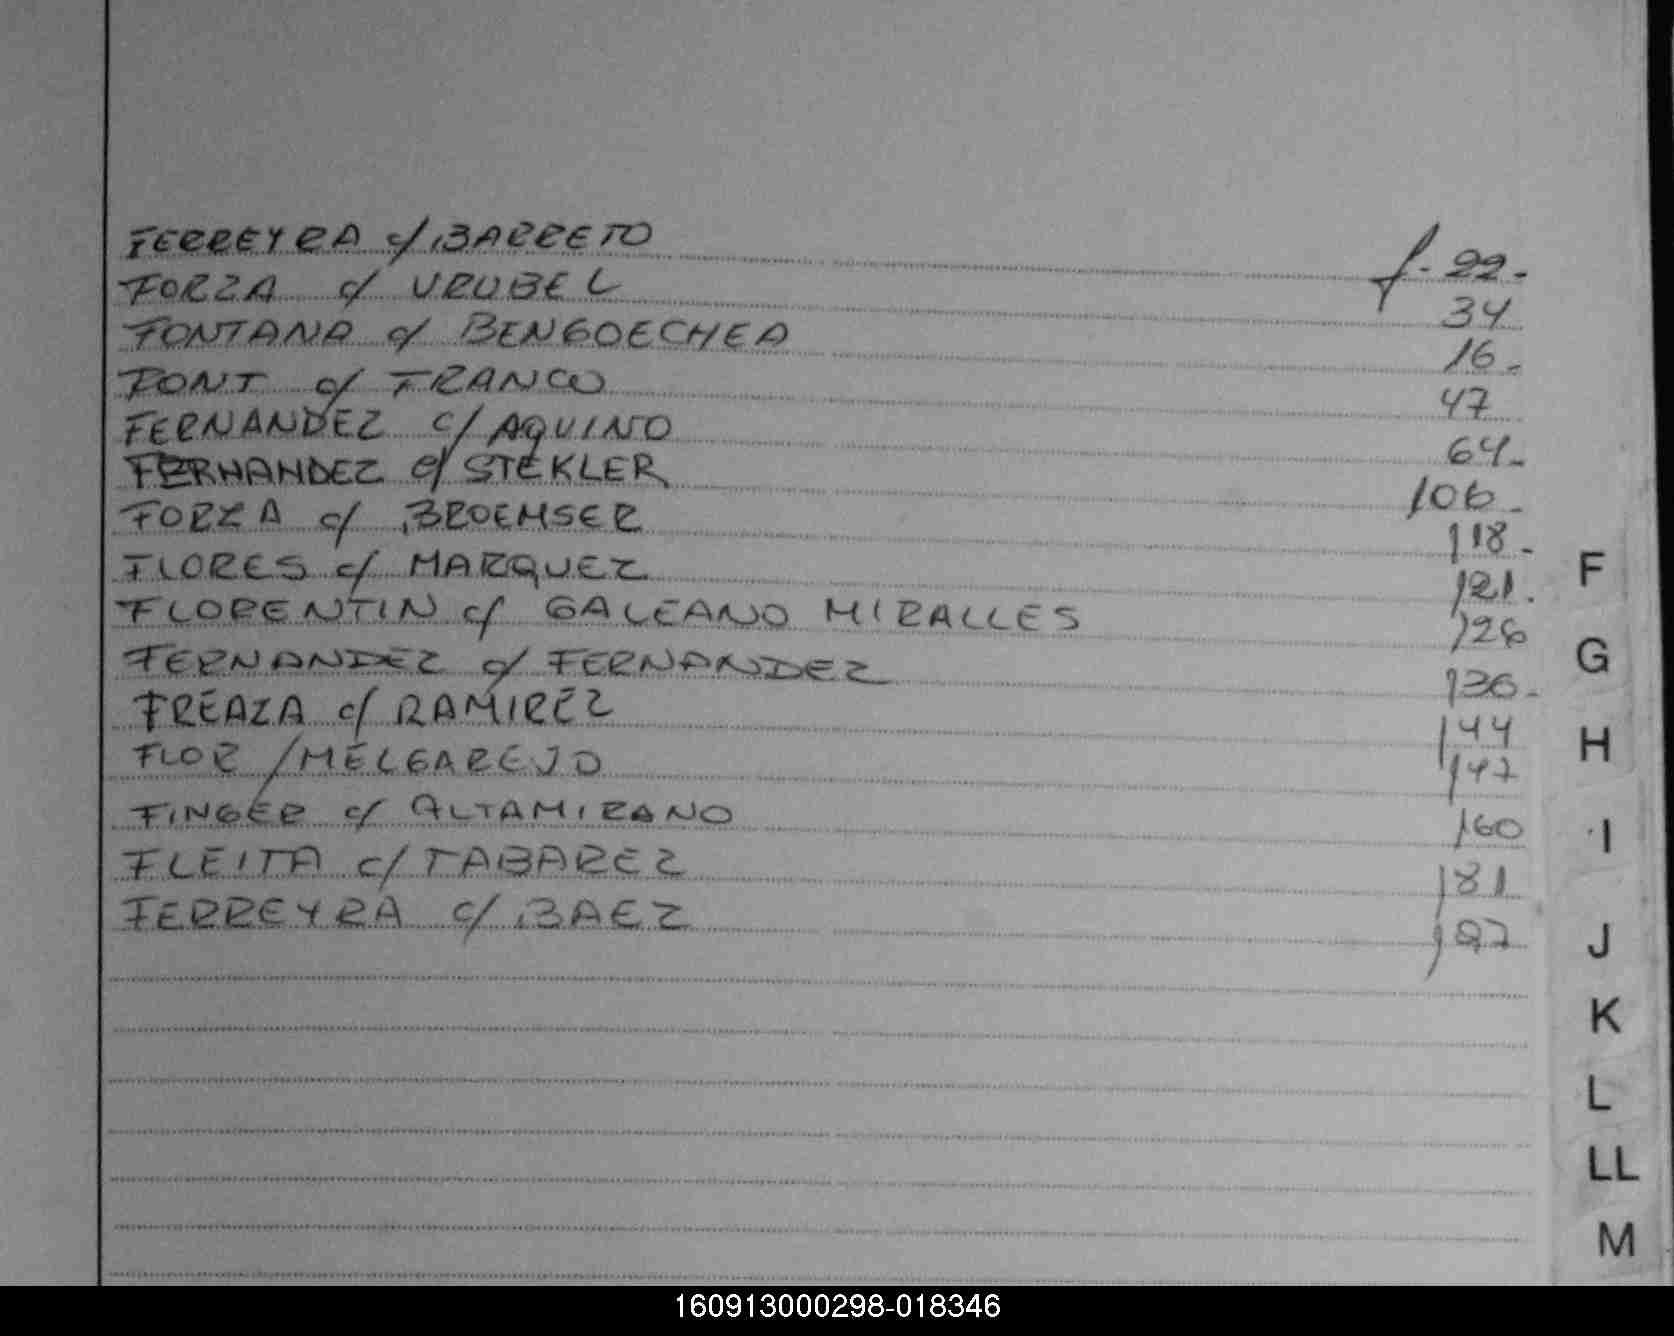 FERREYRA c/ BARRETO f. 22.
FORZA c/ URUBEL 34
FONTANA c/ BENGOECHEA 16.
FONT c/ FRANCO 47
FERNANDEZ c/ AQUINO 64.
FERNANDEZ c/ STEKLER 106.
FORZA c/ BROEMSER 118.
FLORES c/ MARQUEZ 121.
FLORENTIN c/ GALEANO MIRALLES 126
FERNANDEZ c/ FERNANDEZ 136.
FREAZA c/ RAMIREZ 144
FLOR / MELGAREJO 147
FINGER c/ ALTAMIRANO 160
FLEITA c/ TABAREZ 181
FERREYRA c/ BAEZ 197
F
G
H
I
J
K
L
LL
M
160913000298-018346